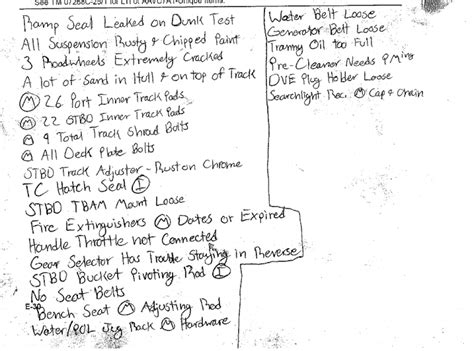 Ramp Seal Leaked on Dunk Test
All Suspension Rusty & Chipped Paint
3 Roadwheels Extremely Cracked
A lot of Sand in Hull & on top of Track
Ⓜ 26 Port Inner Track Pads
Ⓜ 22 STBD Inner Track Pads
Ⓜ 9 Total Track Shroud Bolts
Ⓜ All Deck Plate Bolts
STBD Track Adjustor - Rust on Chrome
TC Hatch Seal Ⓘ
STBD TBAM Mount Loose
Fire Extinguishers Ⓜ Dates or Expired
Handle Throttle not Connected
Gear Selector Has Trouble Staying in Reverse
STBD Bucket Pivoting Rod Ⓘ
No Seat Belts
Bench Seat Ⓜ Adjusting Rod
Water/POL Jug Rack Ⓜ Hardware
Water Belt Loose
Generator Belt Loose
Tranny Oil too Full
Pre-Cleaner Needs PMing
DVE Plug Holder Loose
Searchlight Rec. Ⓜ Cap & Chain